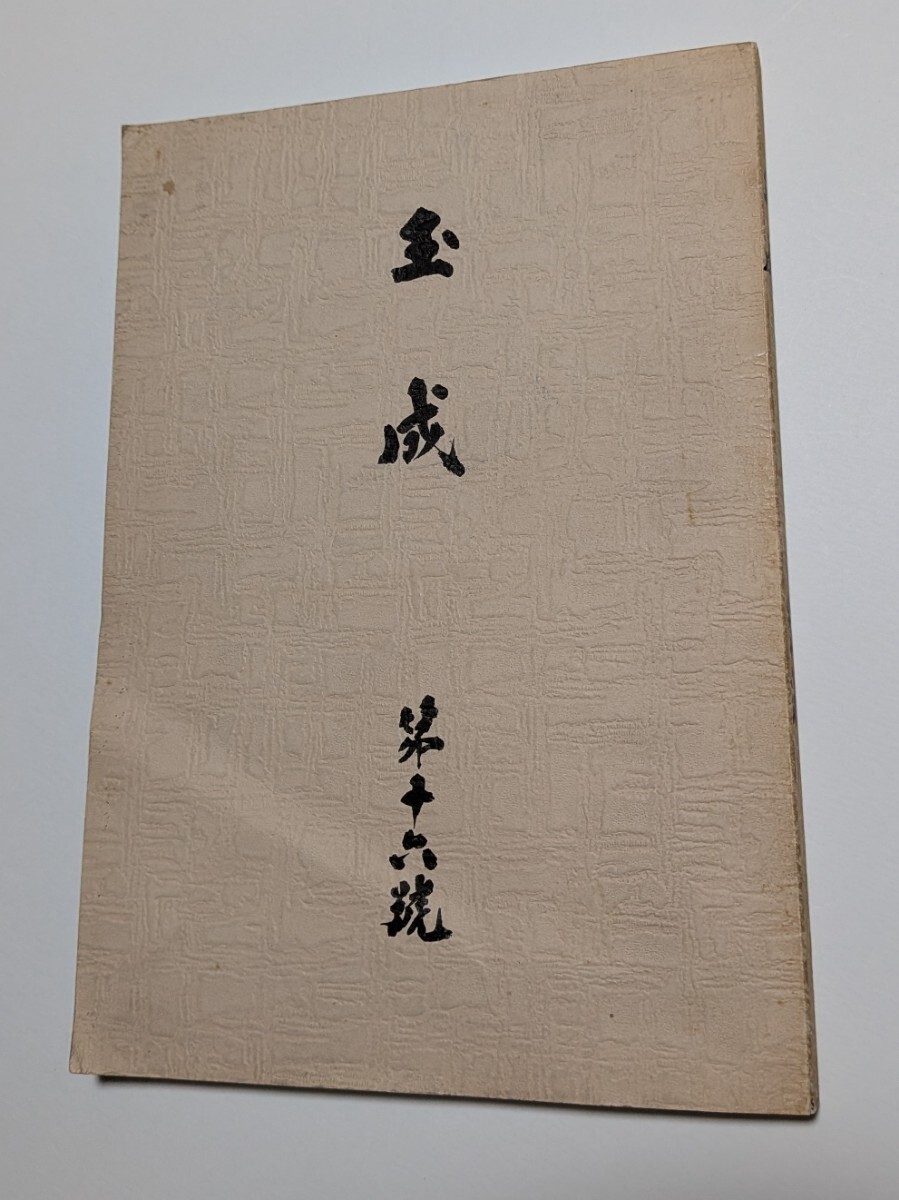 玉成
第十六號